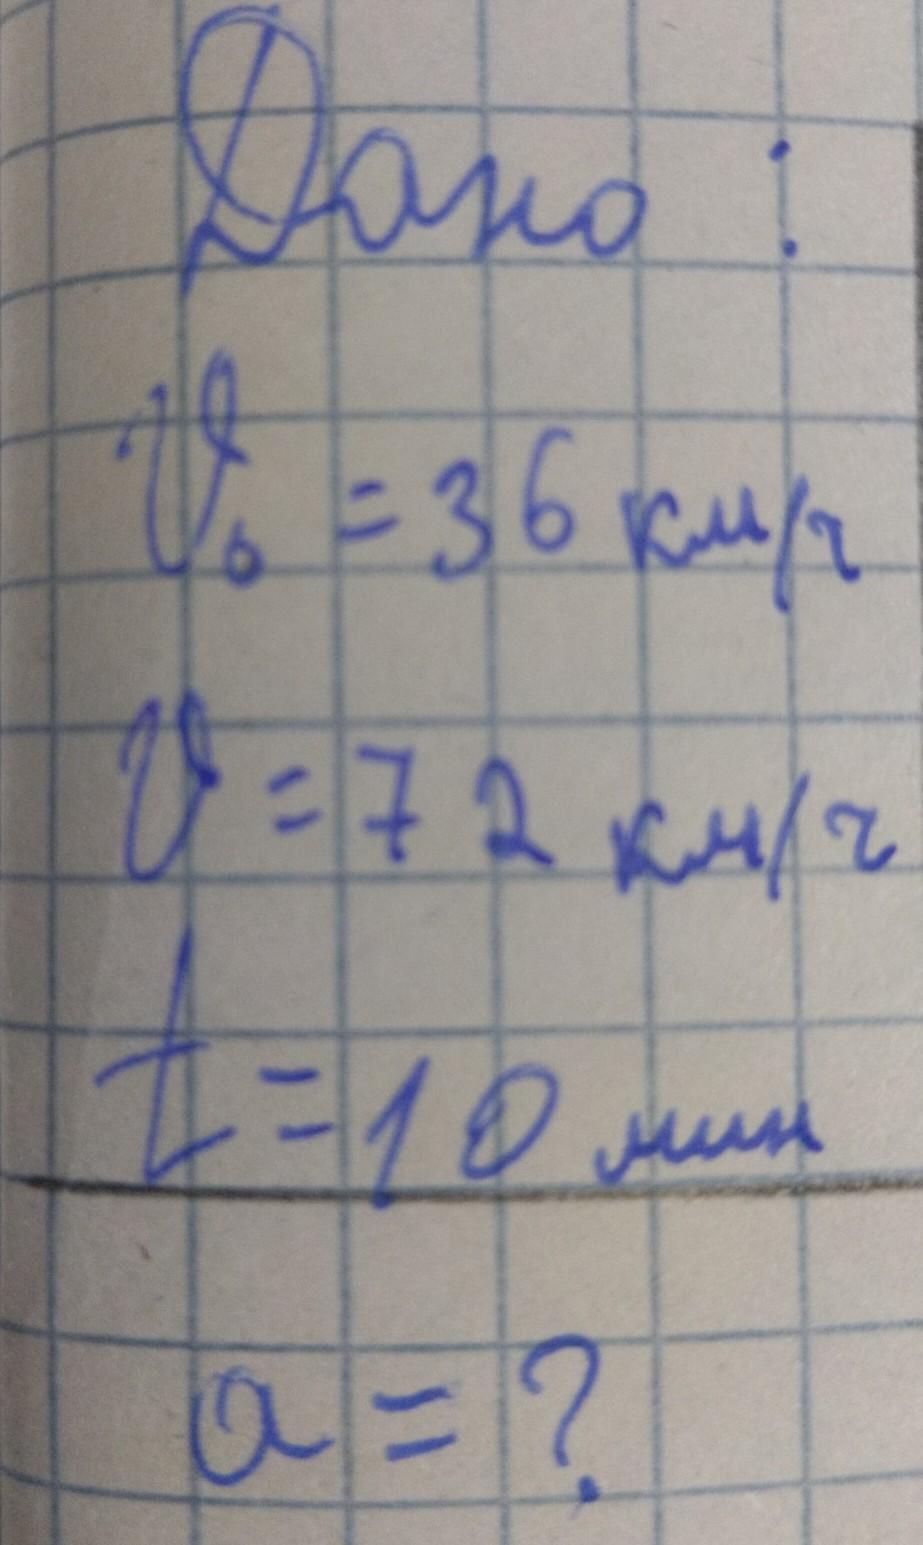 Дано :
V₀ = 36 км/ч
V = 72 км/ч
t = 10 мин
a = ?